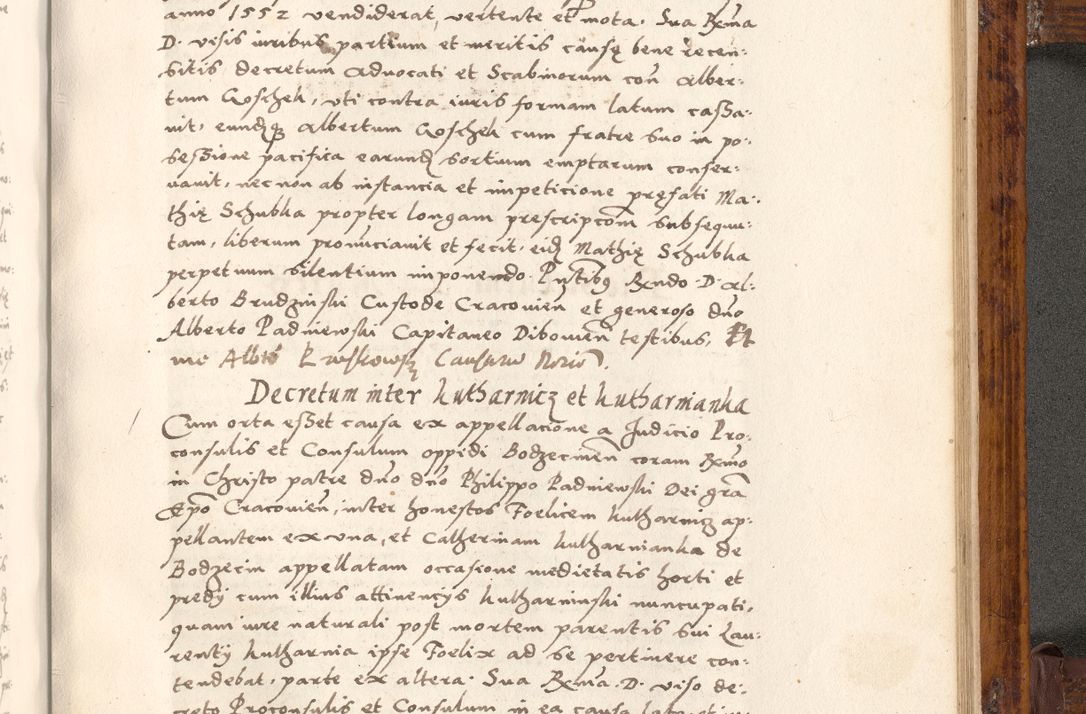 anno 1552 vendiderat, vertente et mota. Sua Rxma
D. visis iuribus partium et meritis causę bene recen:
sitis, decretum Advocati et Scabinorum con Alber:
tum Goschek, uti contra iuris formam latum cassa:
uit, eundqȝ Albertum Goschek cum fratre suo in po:
sessione pacifica earund sortium emptarum conser:
uauit, nec non ab instancia et impeticione pręfati Ma:
thię Schubka propter longam prescripcom subsequu:
tam, liberum pronūciauit et fecit, eid Mathię Schubka
perpetuum silentium imponendo. Pntibꝰ Rxndo D. Al:
berto Brudzinski Custode Cracouieñ et generoso dno
Alberto Padniewski Capitaneo Dibowień testibus, Et
me Albto
Decretum inter Kutharnicz et Kutharnianka
Cum orta esset causa ex appellacione a Judicio Pro:
consulis et Consulum oppidi Bodzecineñ coram Rxmo
in Christo patre dno dno Philippo Padniewski Dei gra
Epo Cracouieñ, inter honestos Foelicem Kutharnicz ap:
pellantem ex una, et Catherinam Kutharnianka de
Bodzecin appellatam occasione medietatis horti et
predij cum illius attinencys Kutharninski nuncupati,
quam iure naturali post mortem parentis sui Lau:
rentij Kutharnia ipse Foelix ad se pertinere con:
tendebat, parte ex altera. Sua Rxma. D. viso de:
creto Proconsulis et Consulum in ea causa